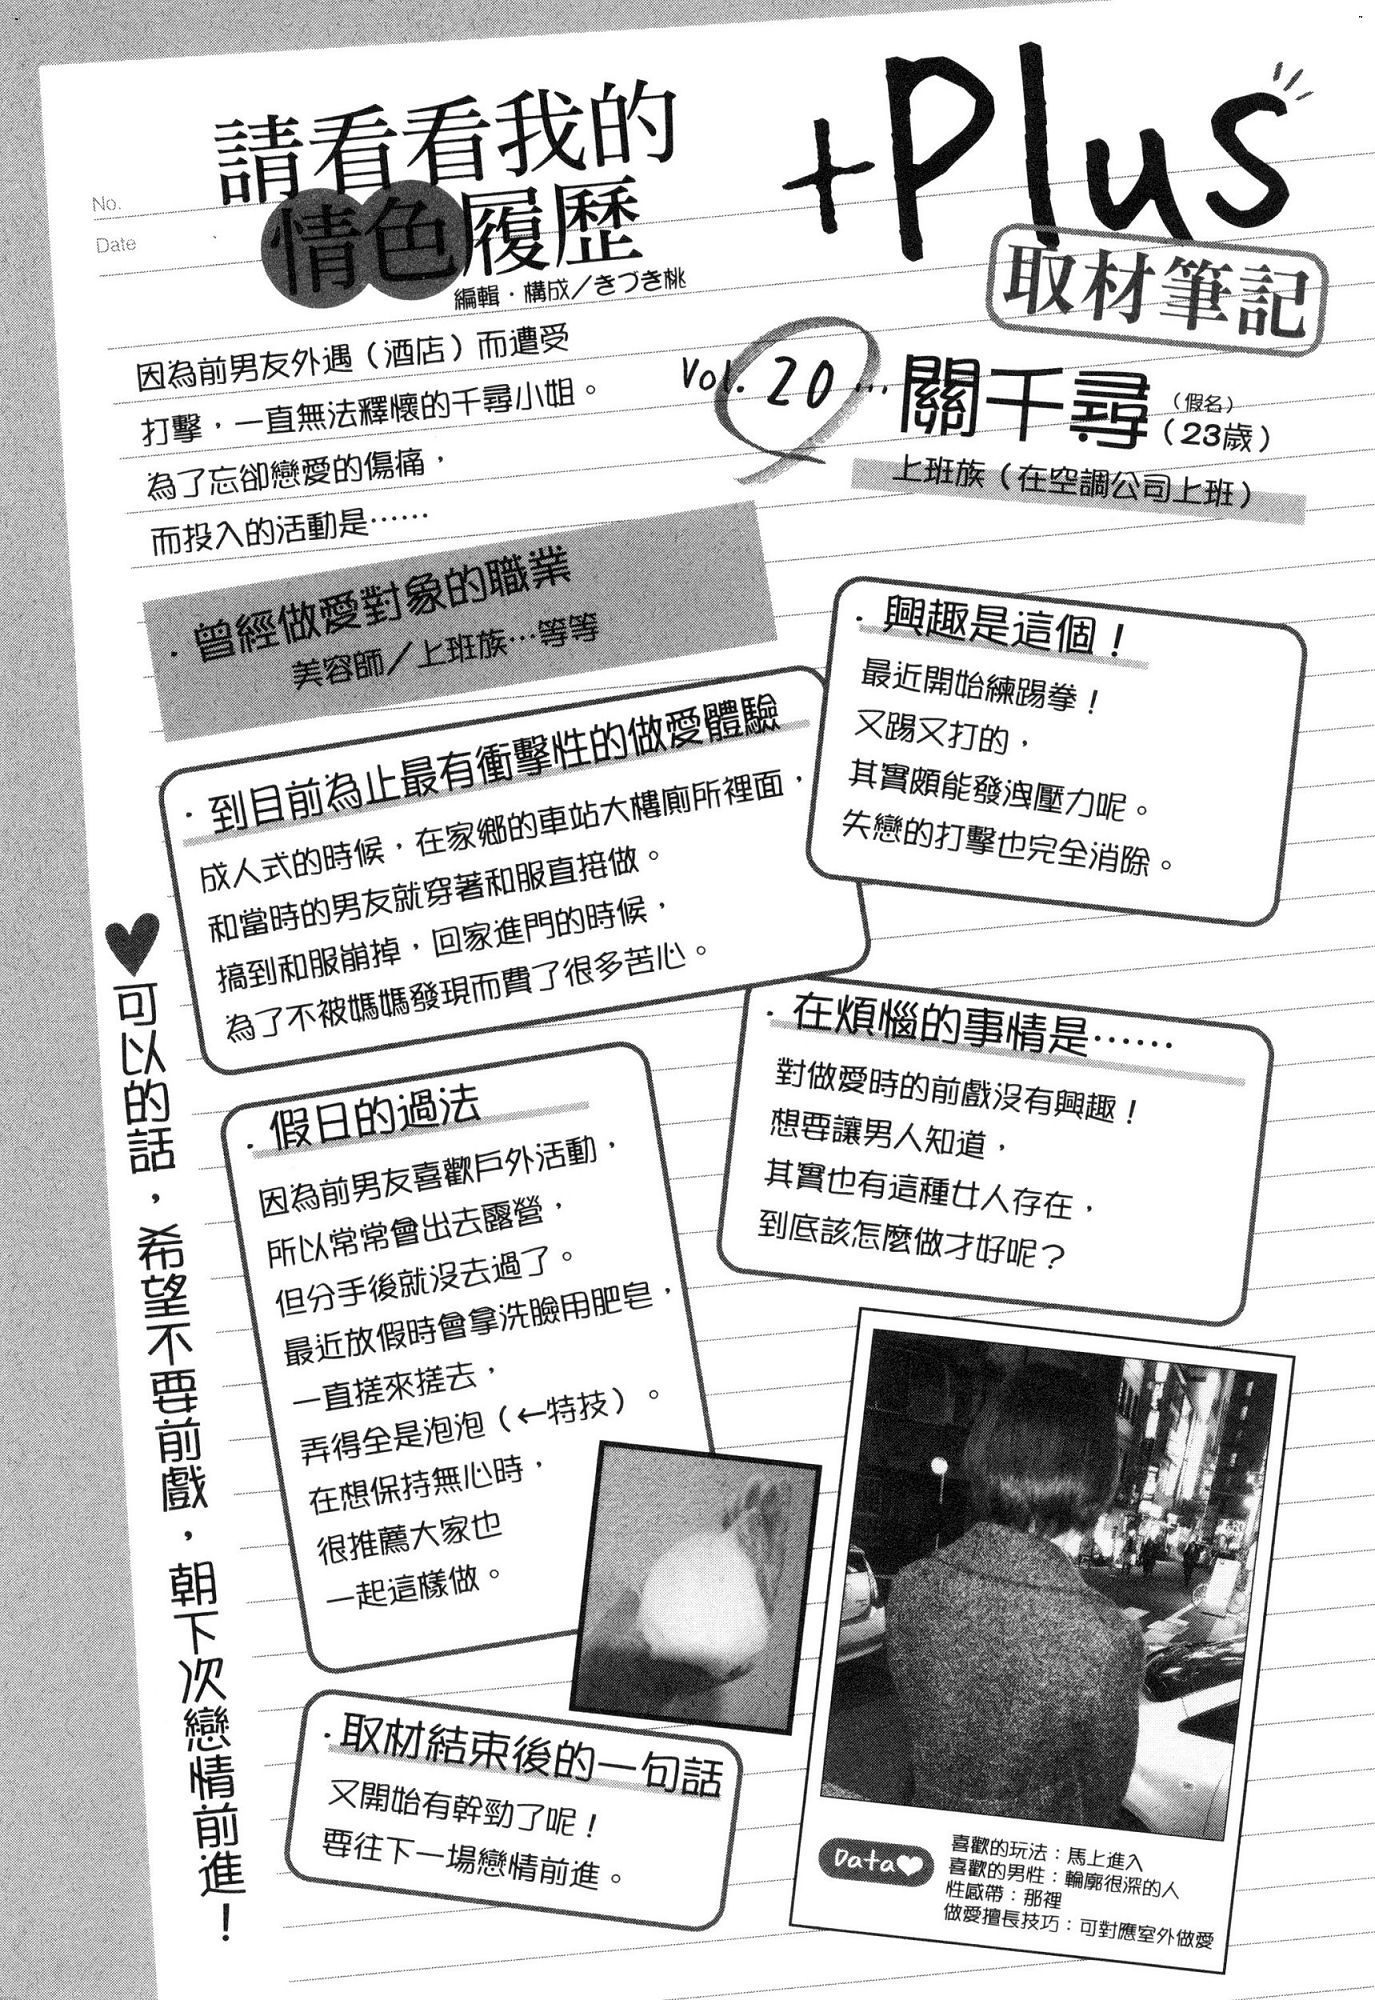 No.
Date
請看看我的
情色履歷
編輯・構成／きづき桃
+Plus
取材筆記
Vol. 20…關千尋
（假名）
（23歲）
上班族（在空調公司上班）
因為前男友外遇（酒店）而遭受
打擊，一直無法釋懷的千尋小姐。
為了忘卻戀愛的傷痛，
而投入的活動是……
・曾經做愛對象的職業
美容師／上班族…等等
・興趣是這個！
最近開始練踢拳！
又踢又打的，
其實頗能發洩壓力呢。
失戀的打擊也完全消除。
・到目前為止最有衝擊性的做愛體驗
成人式的時候，在家鄉的車站大樓廁所裡面，
和當時的男友就穿著和服直接做。
搞到和服崩掉，回家進門的時候，
為了不被媽媽發現而費了很多苦心。
・在煩惱的事情是……
對做愛時的前戲沒有興趣！
想要讓男人知道，
其實也有這種女人存在，
到底該怎麼做才好呢？
・假日的過法
因為前男友喜歡戶外活動，
所以常常會出去露營，
但分手後就沒去過了。
最近放假時會拿洗臉用肥皂，
一直搓來搓去，
弄得全是泡泡（←特技）。
在想保持無心時，
很推薦大家也
一起這樣做。
・取材結束後的一句話
又開始有幹勁了呢！
要往下一場戀情前進。
♥可以的話，希望不要前戲，朝下次戀情前進！
Data♥
喜歡的玩法：馬上進入
喜歡的男性：輪廓很深的人
性感帶：那裡
做愛擅長技巧：可對應室外做愛